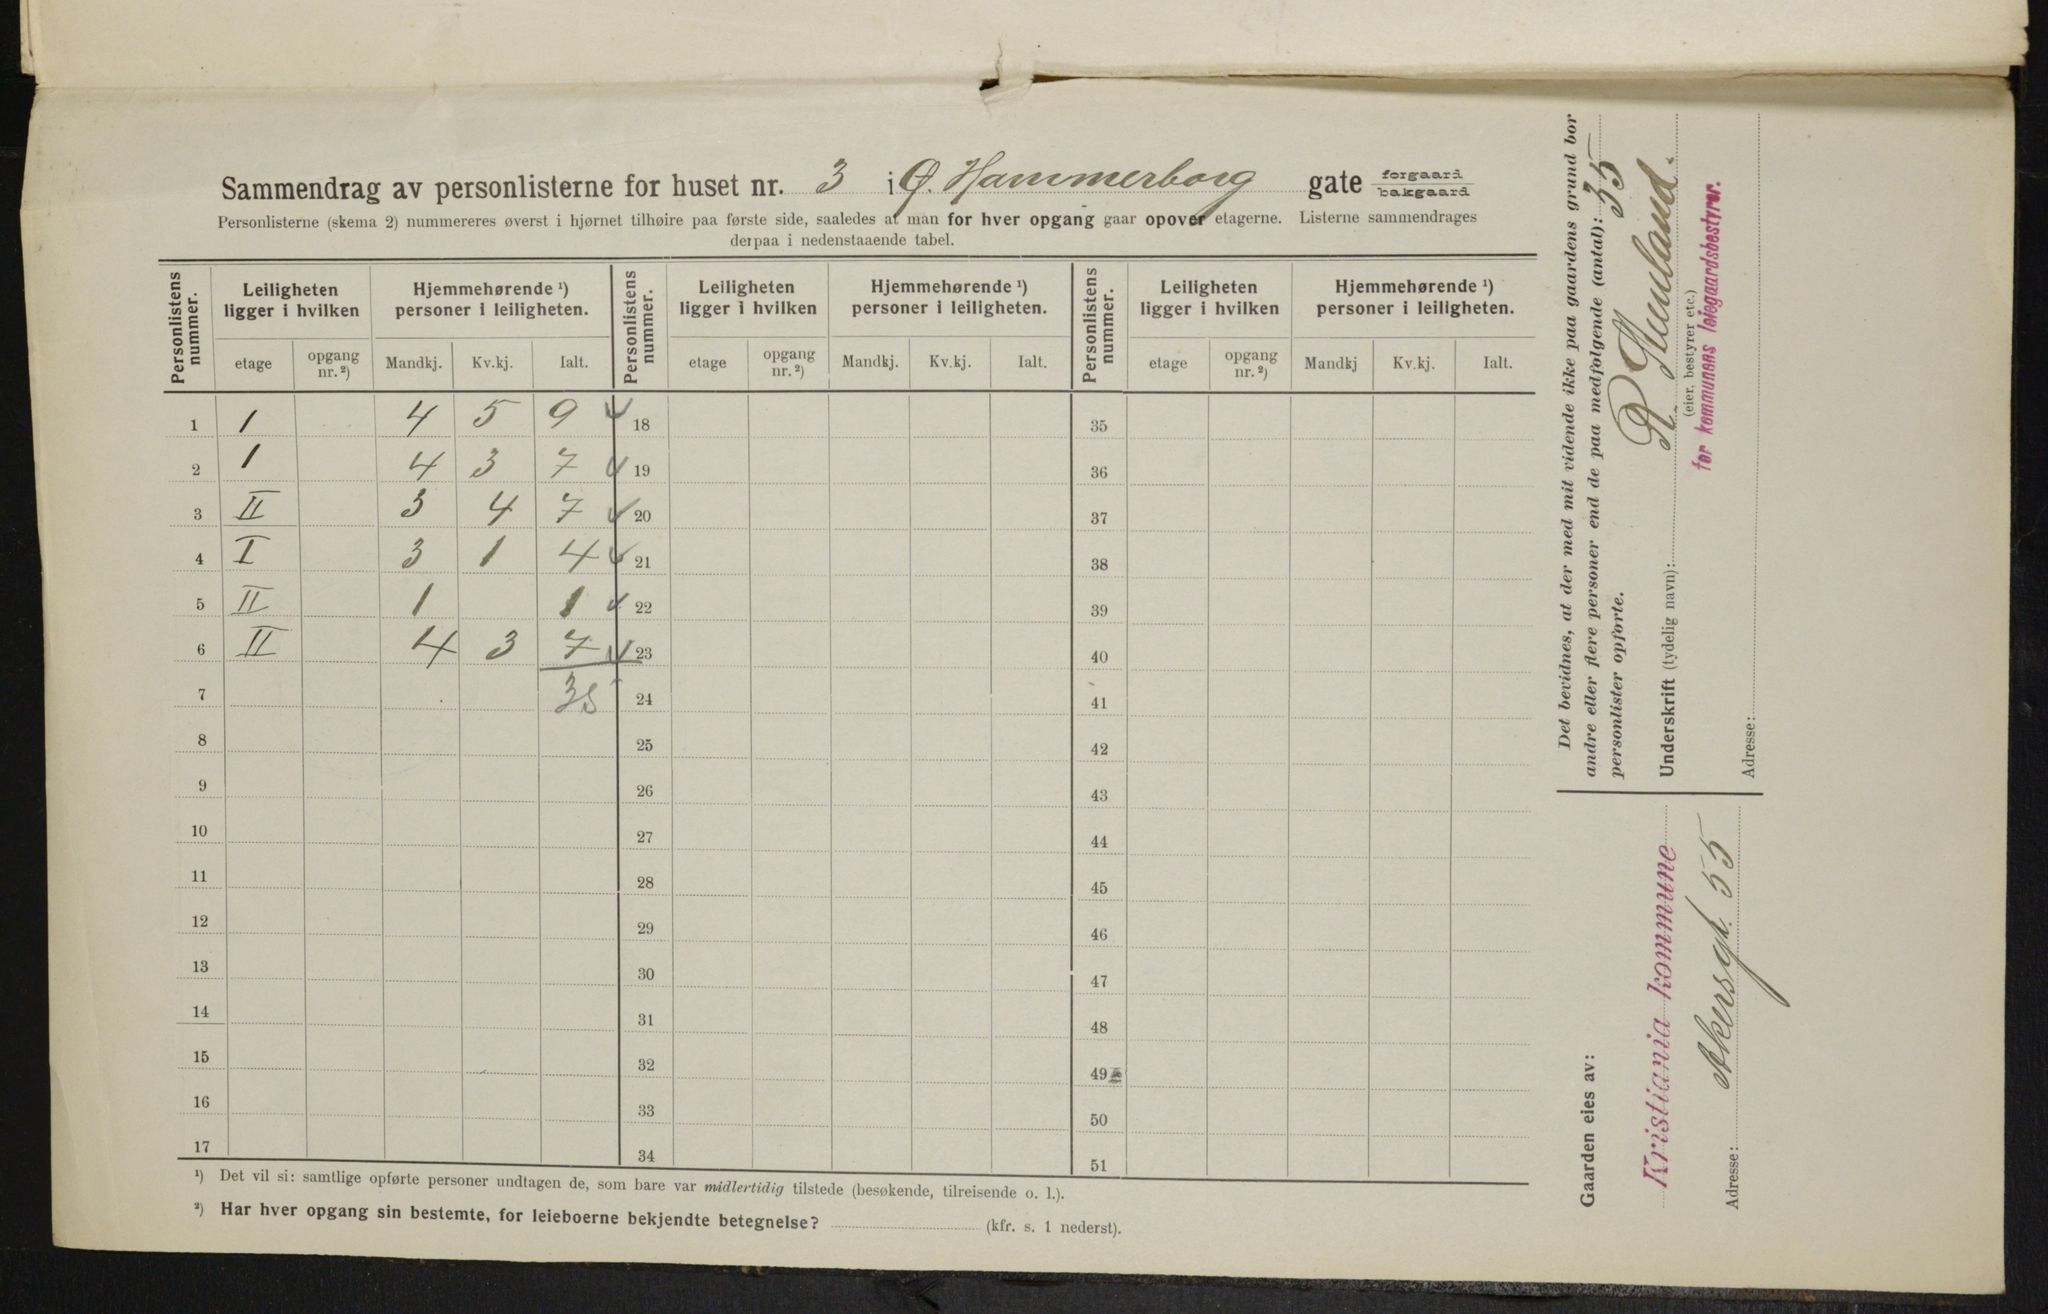 Sammendrag av personlisterne for huset nr. 3 i Ø. Hammerborg gate forgaard bakgaard
Personlisterne (skema 2) nummereres øverst i hjørnet tilhøire paa første side, saaledes at man for hver opgang gaar opover etagerne. Listerne sammendrages
derpaa i nedenstaaende tabel.
Personlistens nummer. Leiligheten ligger i hvilken Hjemmehørende ¹) personer i leiligheten. Personlistens nummer. Leiligheten ligger i hvilken Hjemmehørende ¹) personer i leiligheten. Personlistens nummer. Leiligheten ligger i hvilken Hjemmehørende ¹) personer i leiligheten.
etage opgang nr. ²) Mandkj. Kv.kj. Ialt. etage opgang nr. ²) Mandkj. Kv.kj. Ialt. etage opgang nr. ²) Mandkj Kv.kj. Ialt.
1 I 4 5 9 18 35
2 I 4 3 7 19 36
3 II 3 4 7 20 37
4 I 3 1 4 21 38
5 II 1 1 22 39
6 II 4 3 7 23 40
7 35 24 41
8 25 42
9 26 43
10 27 44
11 28 45
12 29 46
13 30 47
14 31 48
15 32 49
16 33 50
17 34 51
¹) Det vil si: samtlige opførte personer undtagen de, som bare var midlertidig tilstede (besøkende, tilreisende o. l.).
²) Har hver opgang sin bestemte, for leieboerne bekjendte betegnelse? (kfr. s. 1 nederst).
Det bevidnes, at der med mit vidende ikke paa gaardens grund bor
andre eller flere personer end de paa medfølgende (antal): 35
personlister opførte.
Underskrift (tydelig navn): R.
(eier, bestyrer etc.)
for kommunens leiegaardsbestyrer.
Adresse:
Gaarden eies av:
Kristiania kommune
Adresse: Akersgt. 55